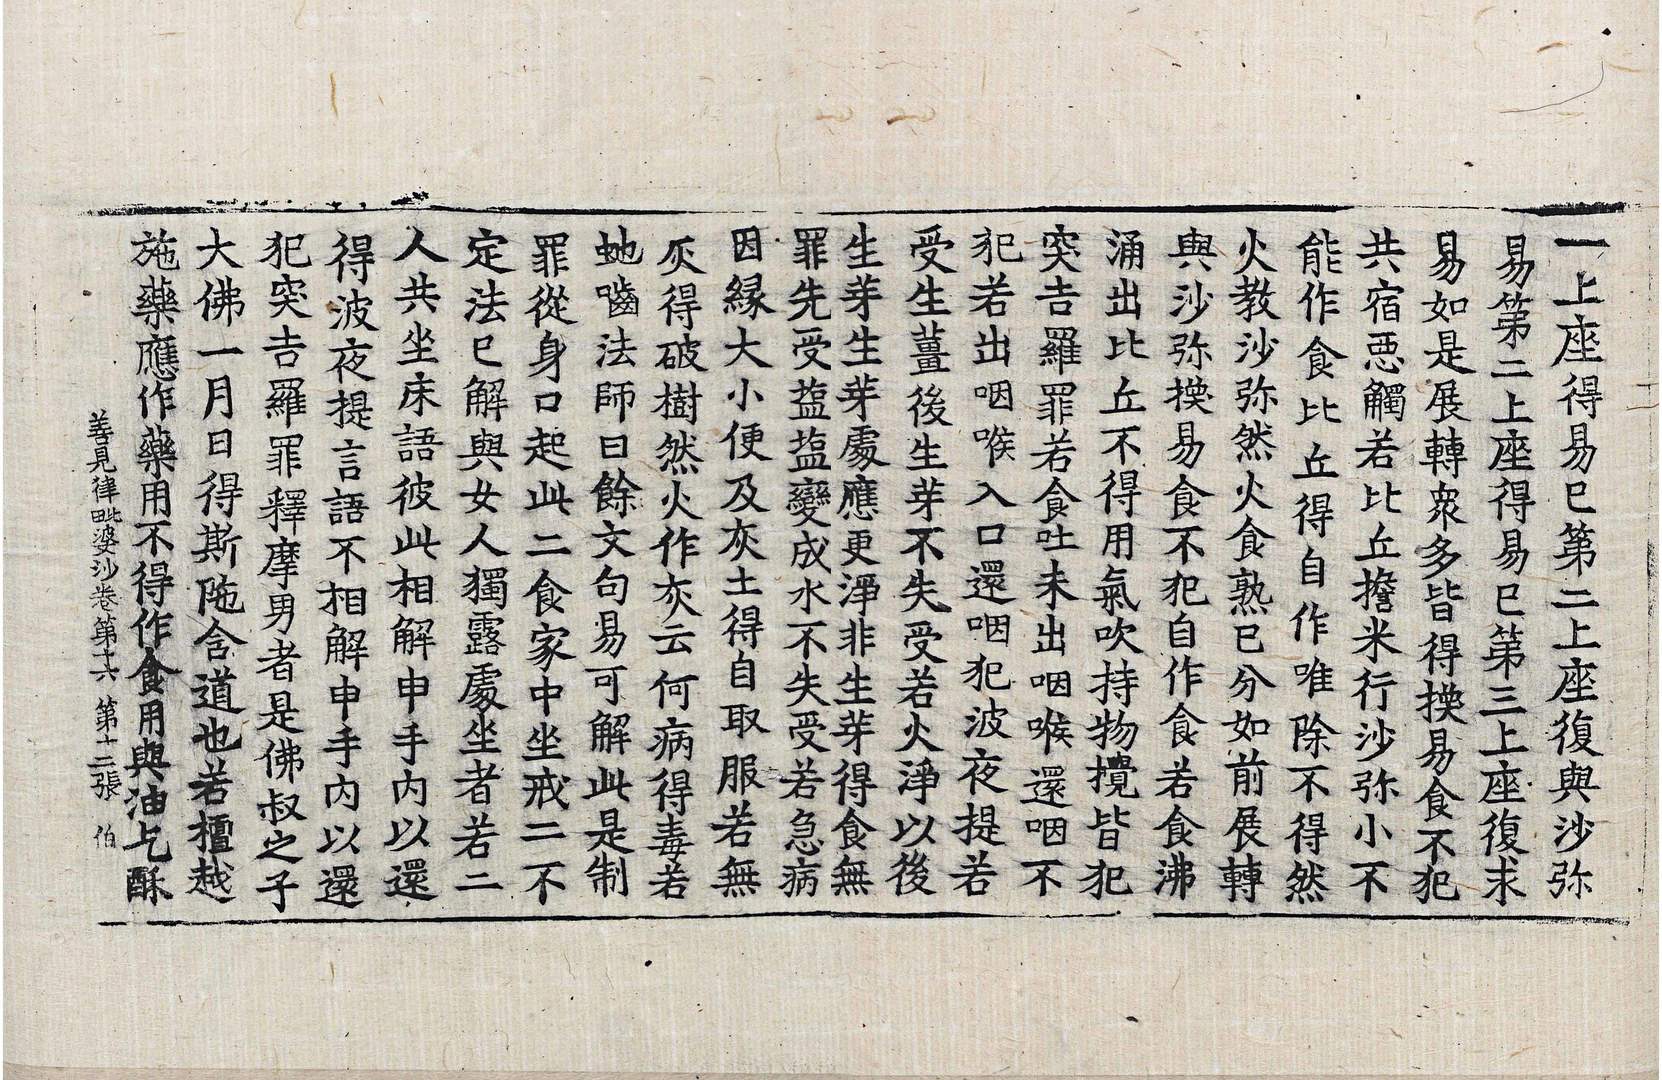 一上座得易巳第二上座復與沙弥
易第二上座得易巳第三上座復求
易如是展轉衆多皆得換易食不犯
共宿惡觸若比丘擔米行沙弥小不
能作食比丘得自作唯除不得然
火教沙弥然火食熟巳分如前展轉
與沙弥換易食不犯自作食若食沸
涌出比丘不得用氣吹持物攪皆犯
突吉羅罪若食吐未出咽喉還咽不
犯若出咽喉入口還咽犯波夜提若
受生薑後生芽不失受若火淨以後
生芽生芽處應更淨非生芽得食無
罪先受塩塩變成水不失受若急病
因緣大小便及灰土得自取服若無
灰得破樹然火作灰云何病得毒若
虵嚙法師曰餘文句易可解此是制
罪從身口起此二食家中坐戒二不
定法巳解與女人獨露處坐者若二
人共坐床語彼此相解申手內以還
得波夜提言語不相解申手內以還
犯突吉羅罪釋摩男者是佛叔之子
大佛一月日得斯陁含道也若檀越
施藥應作藥用不得作食用與油乞酥
善見律毗婆沙卷第十六 第十二張 伯